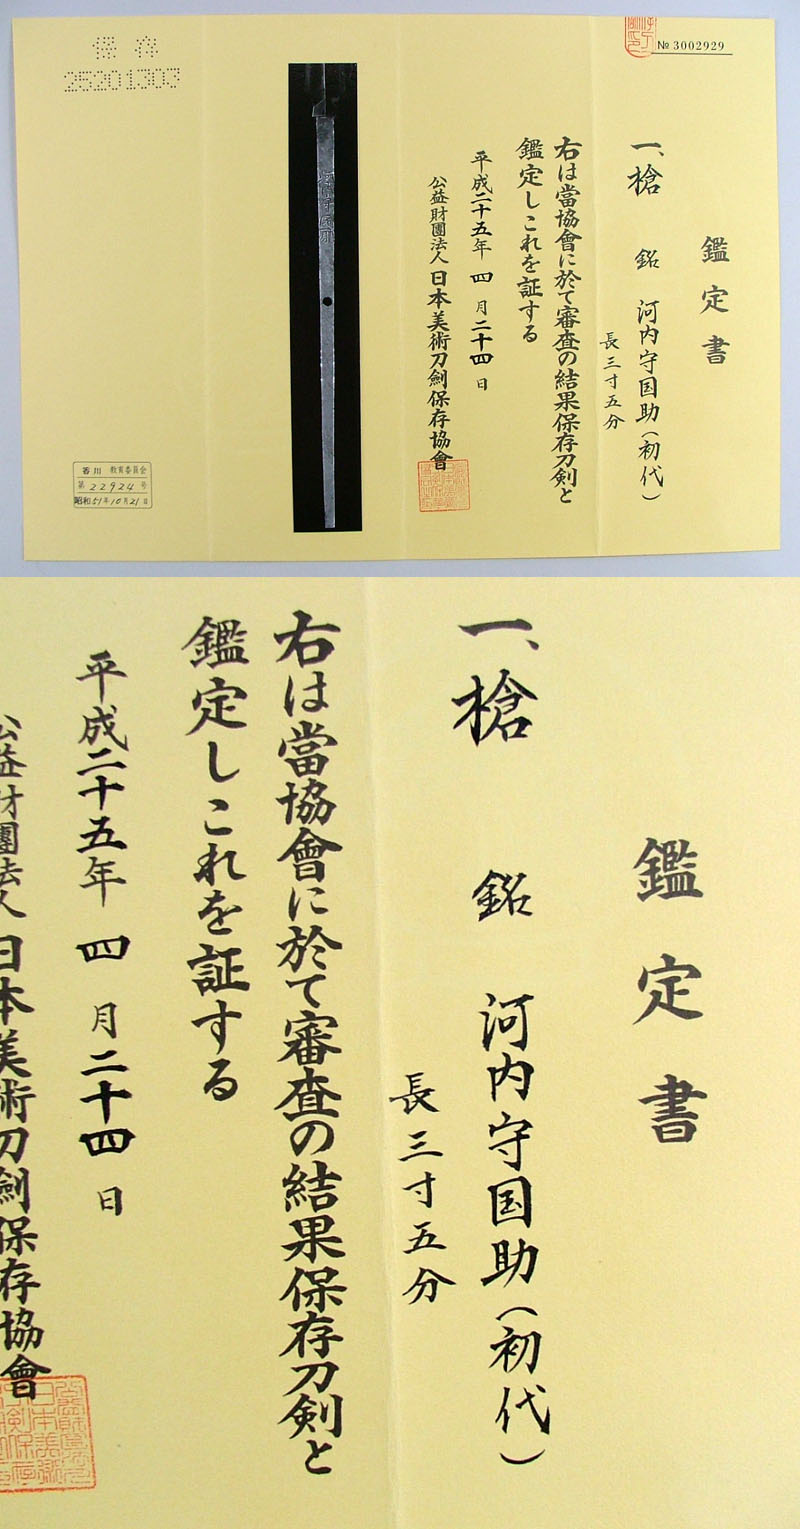 № 3002929
鑑定書
一、槍 銘 河内守国助(初代)
長三寸五分
右は當協會に於て審査の結果保存刀剣と
鑑定しこれを証する
平成二十五年 四 月 二十四 日
公益財團法人 日本美術刀劍保存協會
保存
25201303
香川 教育委員会
第 22924 号
昭和51年10月21日
鑑定書
一、槍 銘 河内守国助(初代)
長三寸五分
右は當協會に於て審査の結果保存刀剣と
鑑定しこれを証する
平成二十五年 四 月 二十四 日
公益財團法人 日本美術刀劍保存協會